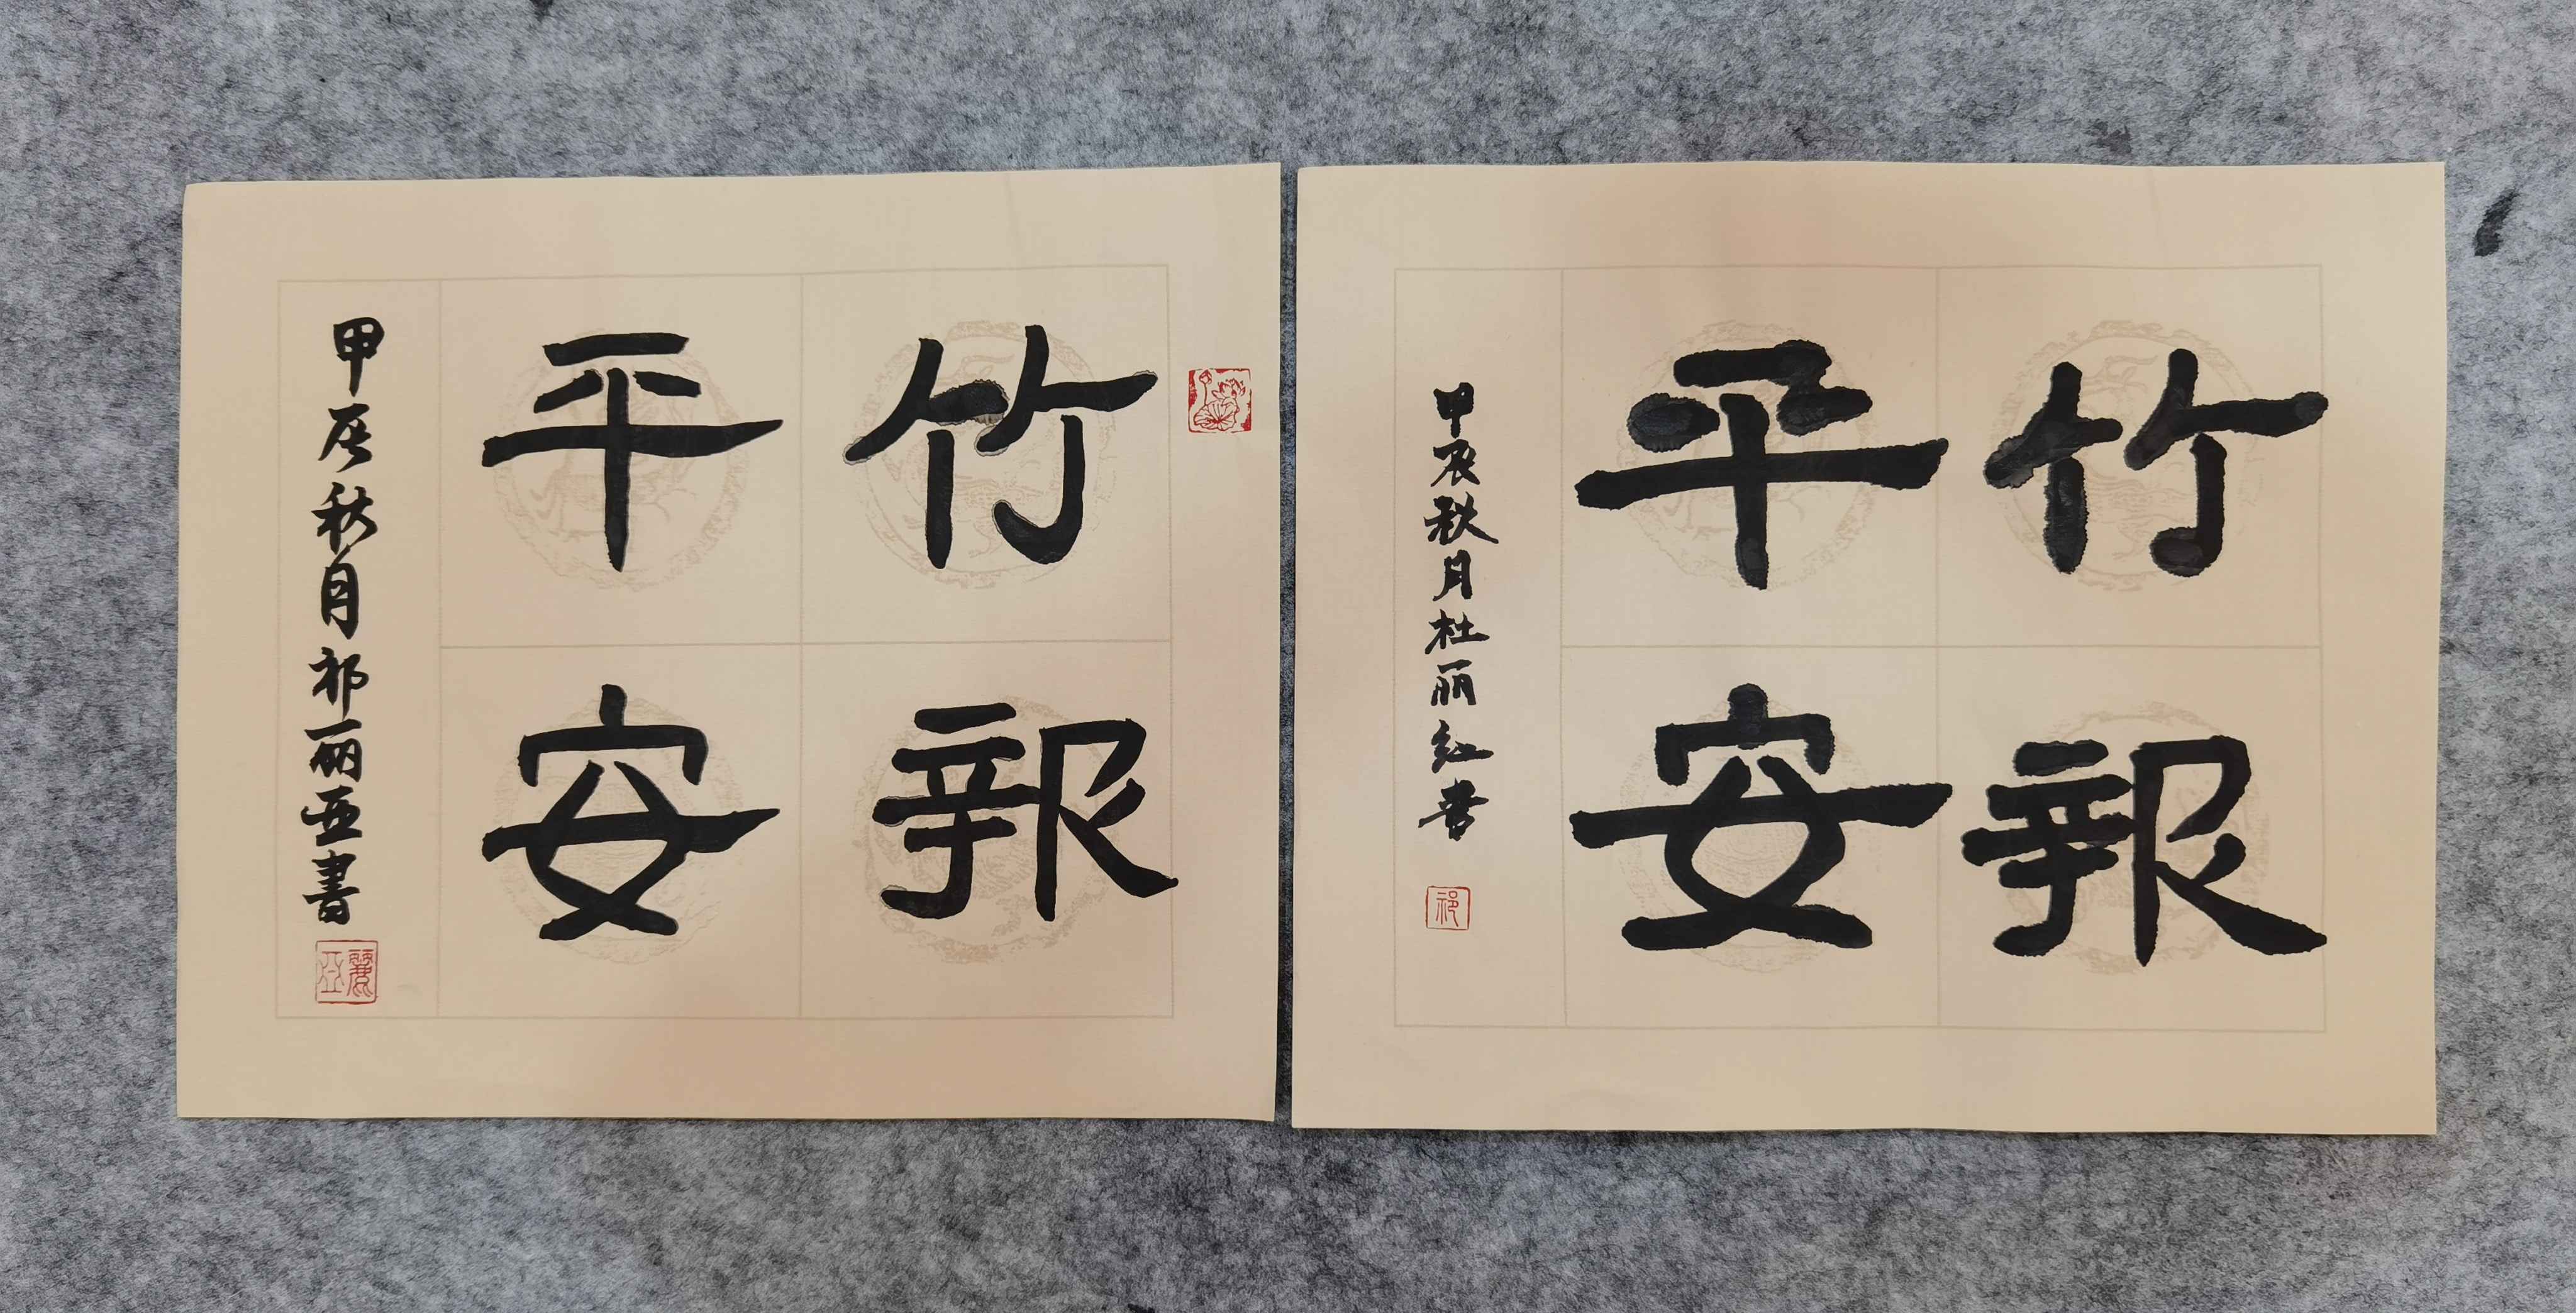 竹報
平安
甲辰秋月杜丽红书
祁
竹報
平安
甲辰秋月祁丽亚書
麗亞